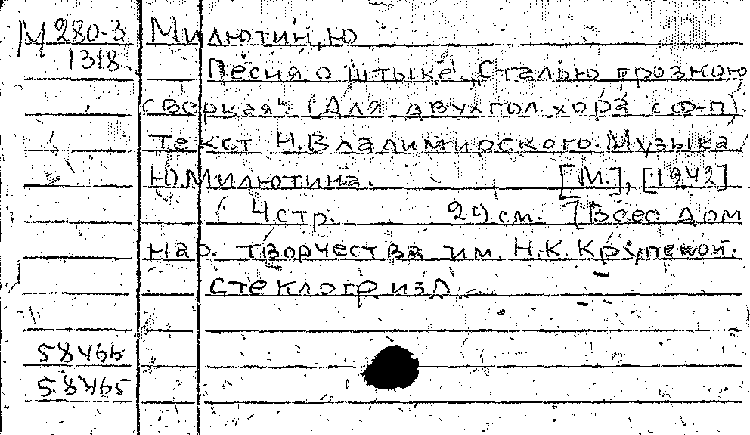 М 280-3 Милютин, Ю
1318 Песня о штыке „Сталью грозною
сверкая“. (Для двухгол. хора с ф-п)
Текст Н. Владимирского. Музыка
Ю. Милютина. [М.], [1942]
4 стр. 29 см. (Всес дом
нар. творчества им. Н.К. Крупской.
стеклогр. изд
58466
58465